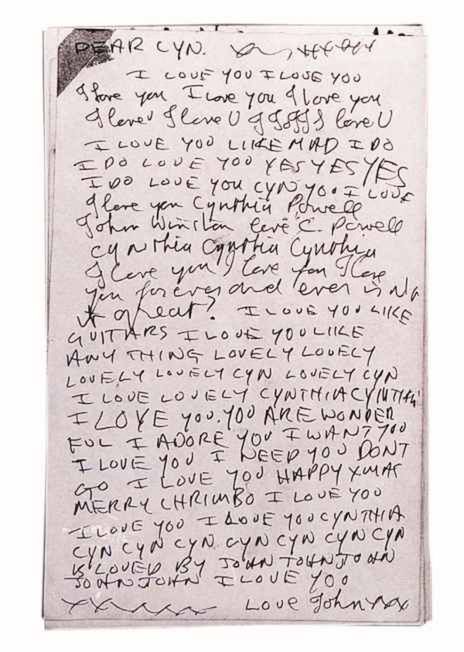 DEAR CYN.
I LOVE YOU I LOVE YOU
I love you I love you I love you
I love I love U I love U
I LOVE YOU LIKE MAD I DO
I DO LOVE YOU YES YES YES
I DO LOVE YOU CYN YOU I LOVE
I love you Cynthia Powell
John Winston love C. Powell
Cynthia Cynthia Cynthia
I love you I love you I love
you forever and ever isNt
it great? I LOVE YOU LIKE
GUITARS I LOVE YOU LIKE
ANY THING LOVELY LOVELY
LOVELY LOVELY CYN LOVELY CYN
I LOVE LOVELY CYNTHIA CYNTHIA
I LOVE YOU. YOU ARE WONDER
FUL I ADORE YOU I WANT YOU
I LOVE YOU I NEED YOU DONT
GO I LOVE YOU HAPPY XMAS
MERRY CHRIMBO I LOVE YOU
I LOVE YOU I LOVE YOU CYNTHIA
CYN CYN CYN CYN CYN CYN CYN
IS LOVED BY JOHN JOHN JOHN
JOHN JOHN I LOVE YOU
LOVE John xxx